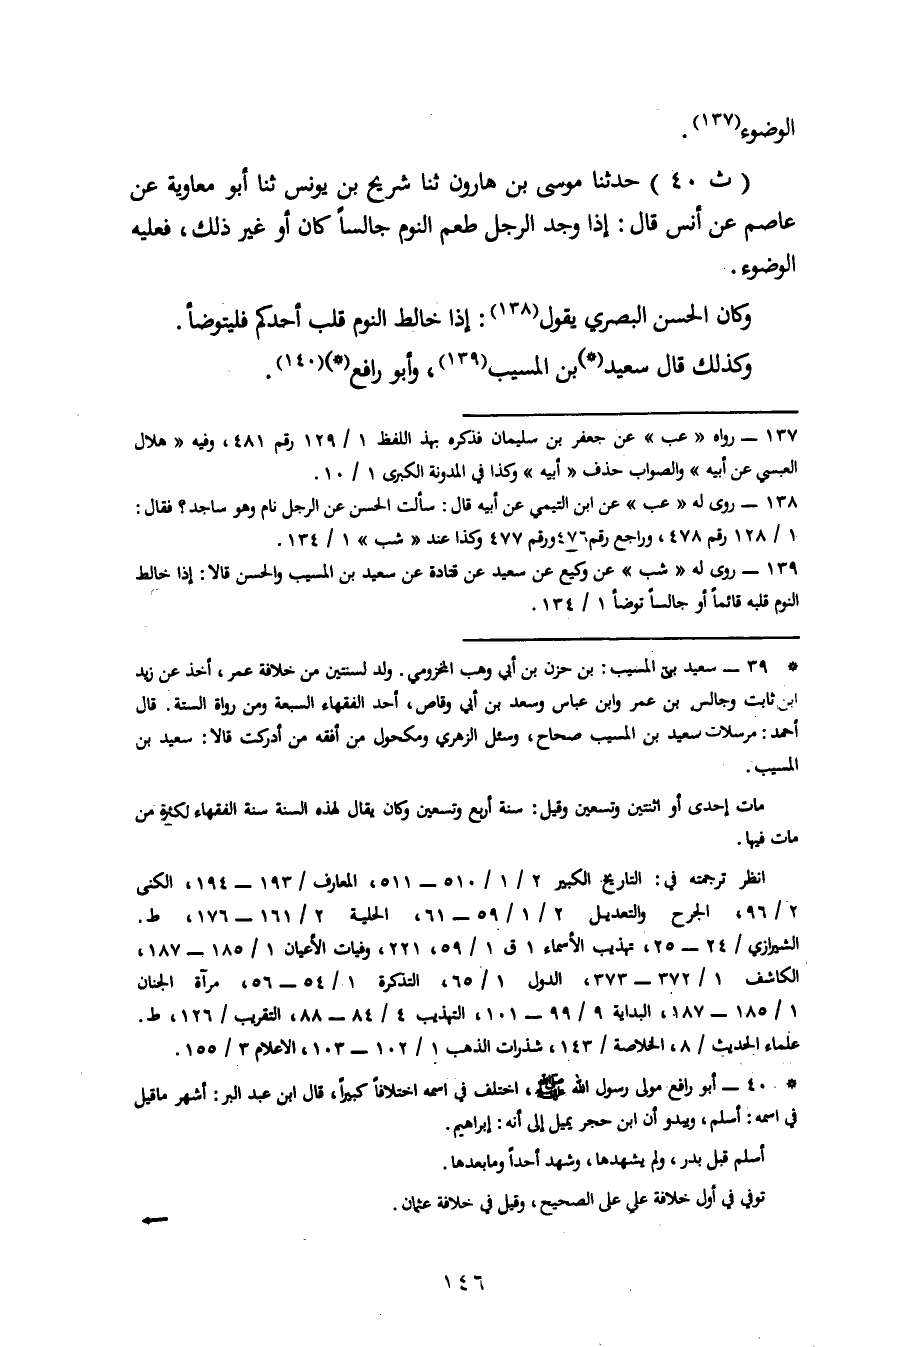 الوضوء(١٣٧) .
( ث ٤٠ ) حدثنا موسى بن هارون ثنا شريح بن يونس ثنا أبو معاوية عن
عاصم عن أنس قال : إذا وجد الرجل طعم النوم جالساً كان أو غير ذلك ، فعليه
الوضوء .
وكان الحسن البصري يقول(١٣٨) : إذا خالط النوم قلب أحدكم فليتوضأ .
وكذلك قال سعيد(*)بن المسيب(١٣٩) ، وأبو رافع(*)(١٤٠) .
١٣٧ ــ رواه « عب » عن جعفر بن سليمان فذكره بهذ اللفظ ١ / ١٢٩ رقم ٤٨١ ، وفيه « هلال
العبسي عن أبيه » والصواب حذف « أبيه » وكذا في المدونة الكبرى ١ / ١٠ .
١٣٨ ــ روى له « عب » عن ابن التيمي عن أبيه قال : سألت الحسن عن الرجل نام وهو ساجد ؟ فقال :
١ / ١٢٨ رقم ٤٧٨ ، وراجع رقم ٤٧٦ ورقم ٤٧٧ وكذا عند « شب » ١ / ١٣٤ .
١٣٩ ــ روى له « شب » عن وكيع عن سعيد عن قتادة عن سعيد بن المسيب والحسن قالا : إذا خالط
النوم قلبه قائماً أو جالساً توضأ ١ / ١٣٤ .
* ٣٩ ــ سعيد بن المسيب : بن حزن بن أبي وهب المخزومي . ولد لسنتين من خلافة عمر ، أخذ عن زيد
ابن ثابت وجالس بن عمر وابن عباس وسعد بن أبي وقاص ، أحد الفقهاء السبعة ومن رواة الستة . قال
أحمد : مرسلات سعيد بن المسيب صحاح ، وسئل الزهري ومكحول من أفقه من أدركت قالا : سعيد بن
المسيب .
مات إحدى أو اثنتين وتسعين وقيل : سنة أربع وتسعين وكان يقال لهذه السنة سنة الفقهاء لكثرة من
مات فيها .
انظر ترجمته في : التاريخ الكبير ٢ / ١ / ٥١٠ ــ ٥١١ ، المعارف / ١٩٣ ــ ١٩٤ ، الكنى
٢ / ٩٦ ، الجرح والتعديل ٢ / ١ / ٥٩ ــ ٦١ ، الحلية ٢ / ١٦١ ــ ١٧٦ ، ط .
الشيرازي / ٢٤ ــ ٢٥ ، تهذيب الأسماء ١ ق ١ / ٥٩ ، ٢٢١ ، وفيات الأعيان ١ / ١٨٥ ــ ١٨٧ ،
الكاشف ١ / ٣٧٢ ــ ٣٧٣ ، الدول ١ / ٦٥ ، التذكرة ١ / ٥٤ ــ ٥٦ ، مرآة الجنان
١ / ١٨٥ ــ ١٨٧ ، البداية ٩ / ٩٩ ــ ١٠١ ، التهذيب ٤ / ٨٤ ــ ٨٨ ، التقريب / ١٢٦ ، ط .
علماء الحديث / ٨ ، الخلاصة / ١٤٣ ، شذرات الذهب ١ / ١٠٢ ــ ١٠٣ ، الاعلام ٣ / ١٥٥ .
* ٤٠ ــ أبو رافع مولى رسول الله ﷺ ، اختلف في اسمه اختلافاً كبيراً ، قال ابن عبد البر : أشهر ماقيل
في اسمه : أسلم ، ويبدو أن ابن حجر يميل إلى أنه : إبراهيم .
أسلم قبل بدر ، ولم يشهدها ، وشهد أحداً ومابعدها .
توفي في أول خلافة علي على الصحيح ، وقيل في خلافة عثمان .
١٤٦